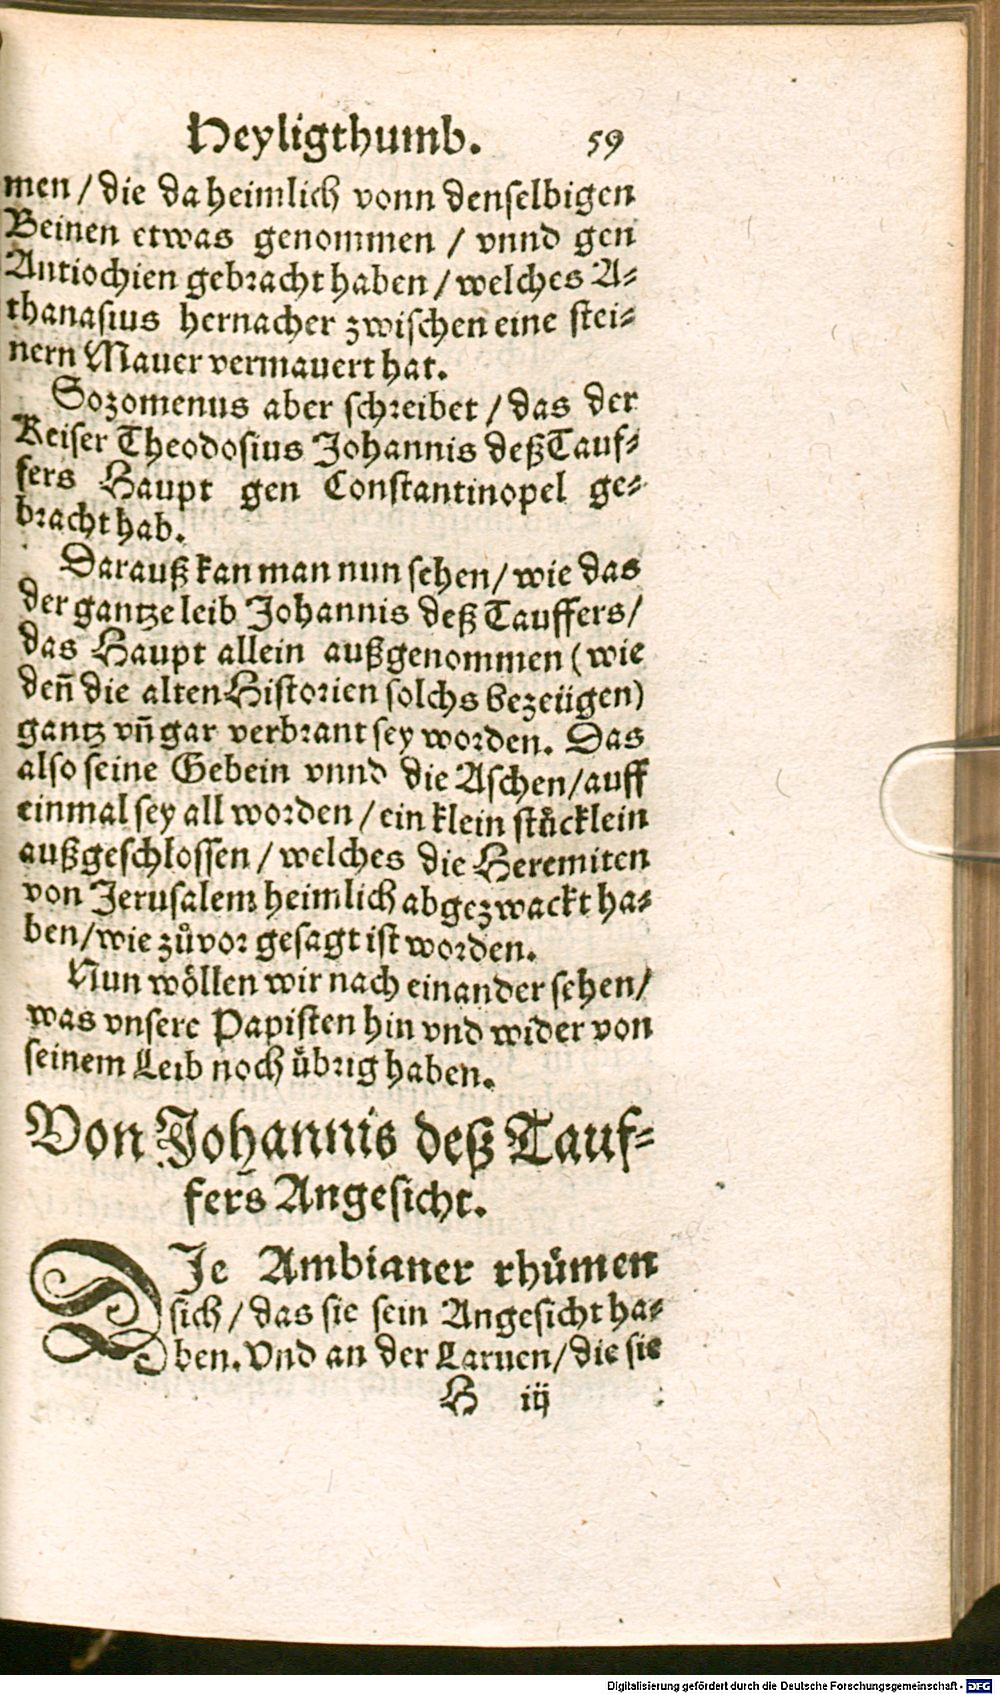 Heyligthumb. 59
men / die da heimlich vonn denselbigen
Beinen etwas genommen / vnnd gen
Antiochien gebracht haben / welches A⸗
thanasius hernacher zwischen eine stei⸗
nern Mauer vermauert hat.
Sozomenus aber schreibet / das der
Keiser Theodosius Johannis deß Tauf⸗
fers Haupt gen Constantinopel ge⸗
bracht hab.
Darauß kan man nun sehen / wie das
der gantze leib Johannis deß Tauffers /
das Haupt allein außgenommen (wie
deñ die alten Historien solchs bezeügen)
gantz vñ gar verbrant sey worden. Das
also seine Gebein vnnd die Aschen / auff
einmal sey all worden / ein klein stůcklein
außgeschlossen / welches die Heremiten
von Jerusalem heimlich abgezwackt ha⸗
ben / wie zůvor gesagt ist worden.
Nun wöllen wir nach einander sehen /
was vnsere Papisten hin vnd wider von
seinem Leib noch ůbrig haben.
Von Johannis deß Tauf⸗
fers Angesicht.
DJe Ambianer rhůmen
sich / das sie sein Angesicht ha⸗
ben. Vnd an der Laruen / die sie
H iij
Digitalisierung gefördert durch die Deutsche Forschungsgemeinschaft - DFG